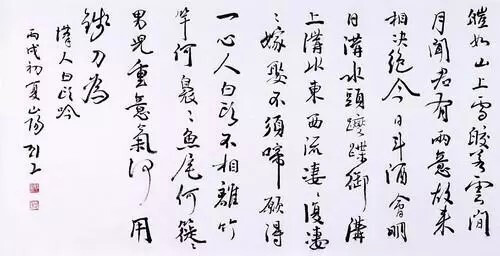 皚如山上雪皎若雲間
月聞君有兩意故來
相決絕今日斗酒會明
日溝水頭躞蹀御溝
上溝水東西流凄〻復凄
〻嫁娶不須啼願得
一心人白頭不相離竹
竿何裊〻魚尾何簁〻
男兒重意氣何用
錢刀為
漢人白頭吟
丙戌初夏山陽